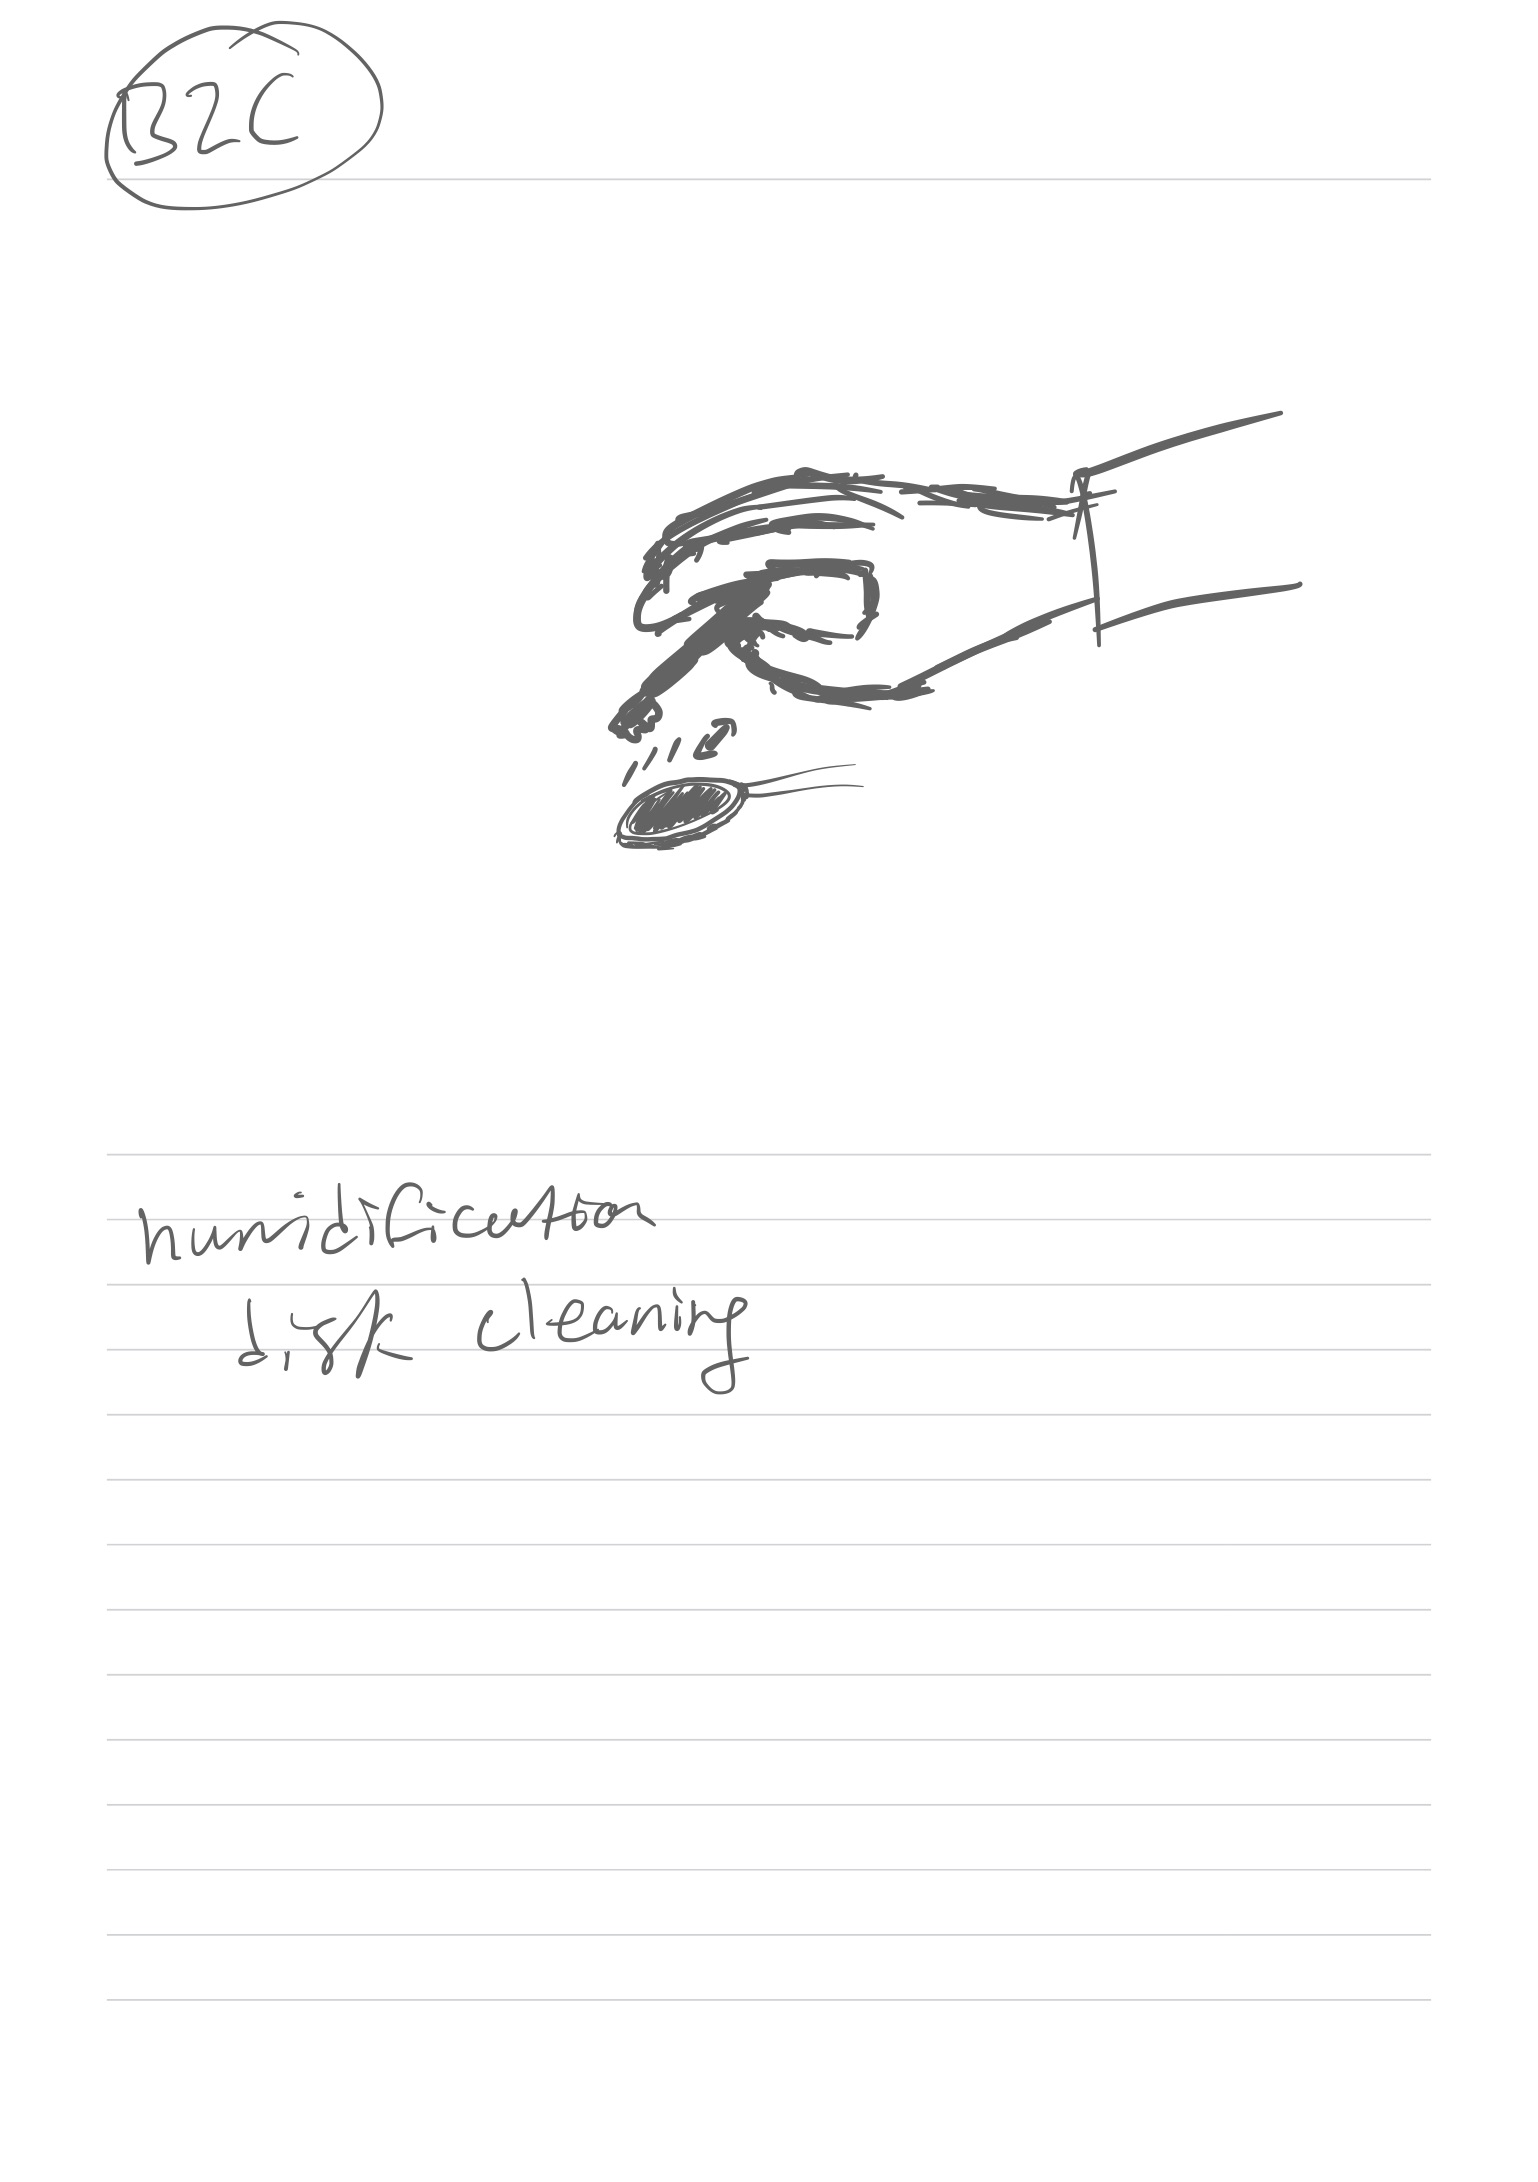 B2C
humidification
disk cleaning